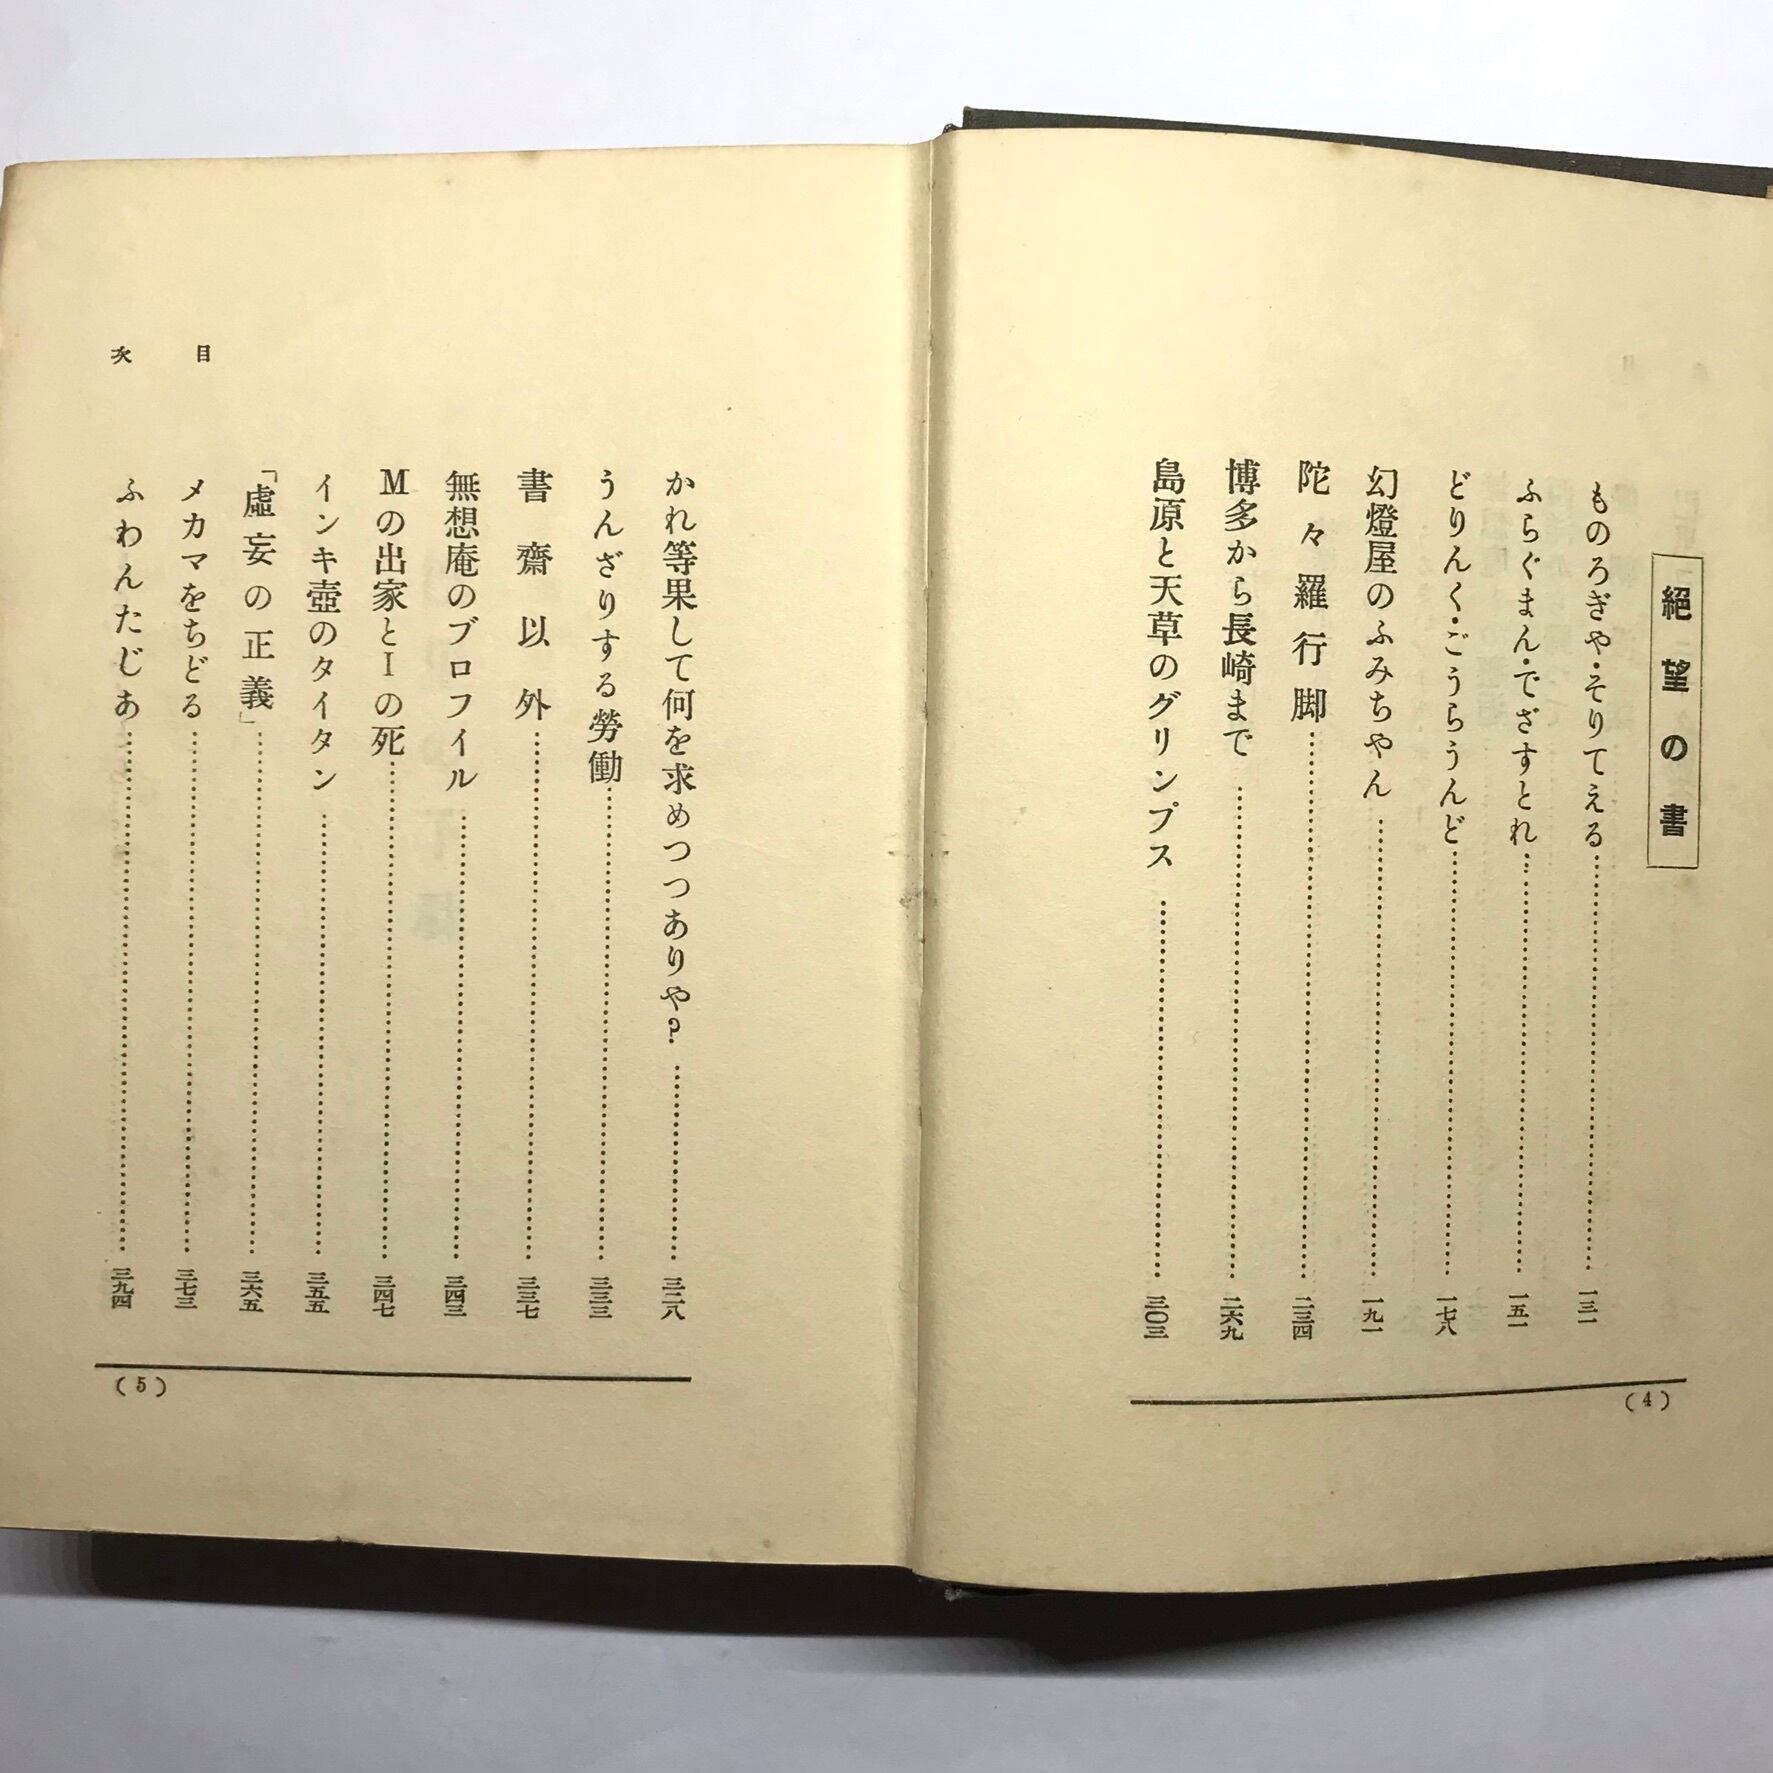 絕望の書
ものろぎや・そりてえる……一三一
ふらぐまん・でざすとれ……一五一
どりんく・ごうらうんど……一七八
幻燈屋のふみちやん……一九一
陀々羅行脚……二三四
博多から長崎まで……二六九
島原と天草のグリンプス……三〇三
(4)
目次
かれ等果して何を求めつつありや?……三二八
うんざりする勞働……三三三
書齋以外……三三七
無想庵のプロフイル……三四三
Mの出家とIの死……三四七
インキ壺のタイタン……三五五
「虛妄の正義」……三六五
メカマをちどる……三七三
ふわんたじあ……三九四
(5)